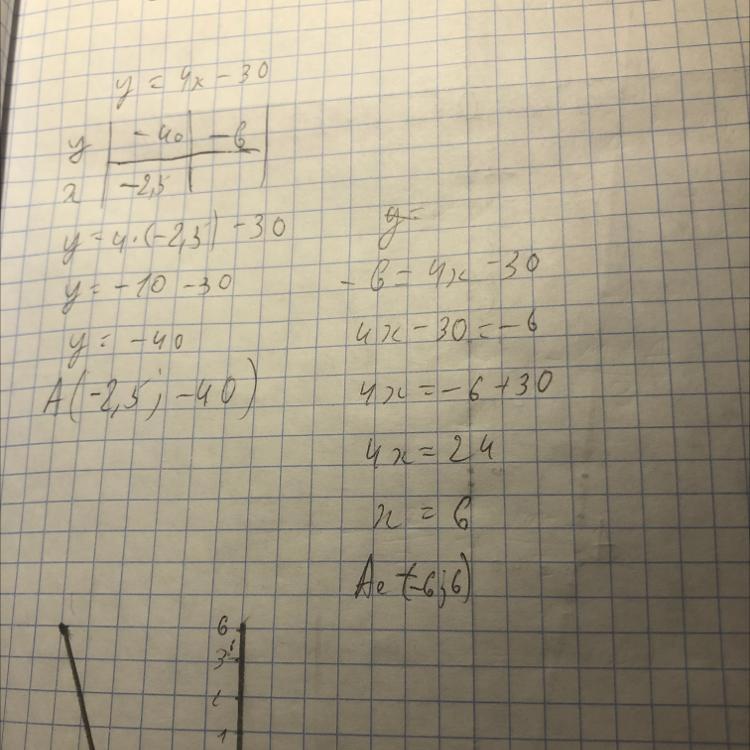 y = 4x - 30
y | -40 | -6
x | -2,5 |
y = 4 · (-2,5) - 30
y = -10 - 30
y = -40
A(-2,5; -40)
y=
-6 = 4x - 30
4x - 30 = -6
4x = -6 + 30
4x = 24
x = 6
(-6;6)
6
3
1